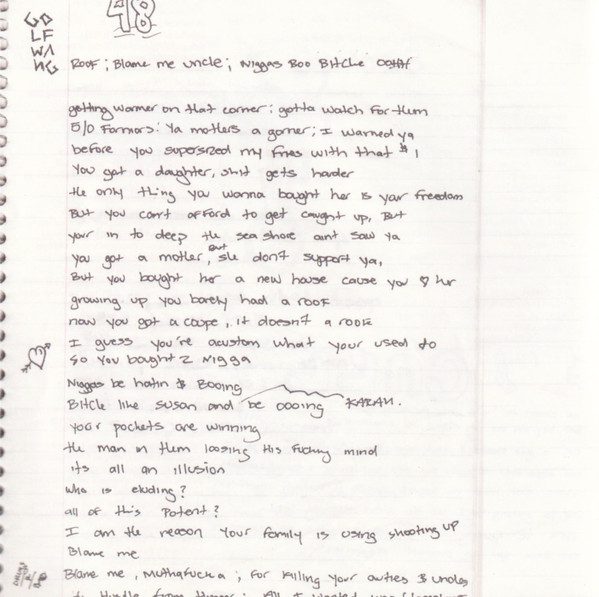 48
GO
LF
WA
NG
Roof ; Blame me uncle ; Niggas Boo Bitche
getting warmer on that corner ; gotta watch For them
5/0 Formors: Ya mothers a gorner ; I warned ya
before you supersized my fries with that $1
You got a daughter, shit gets harder
the only thing you wanna bought her is your freedom
But you can't afford to get caught up, But
your in to deep the sea shore aint saw ya
you got a mother, but she don't support ya,
But you bought her a new house cause you ♡ her
growing up you barely had a roof
now you got a coupe, it doesn't a roof
I guess you're acustom what your used to
So you bought 2 Nigga
Niggas be hatin & Booing
Bitche like susan and be oooing KARAN.
your pockets are winning
the man in them loosing His Fucking mind
its all an illusion
who is eluding?
all of this Potent?
I am the reason your family is using shooting up
Blame me
Blame me, Muthafucka ; For killing your aunties & uncles